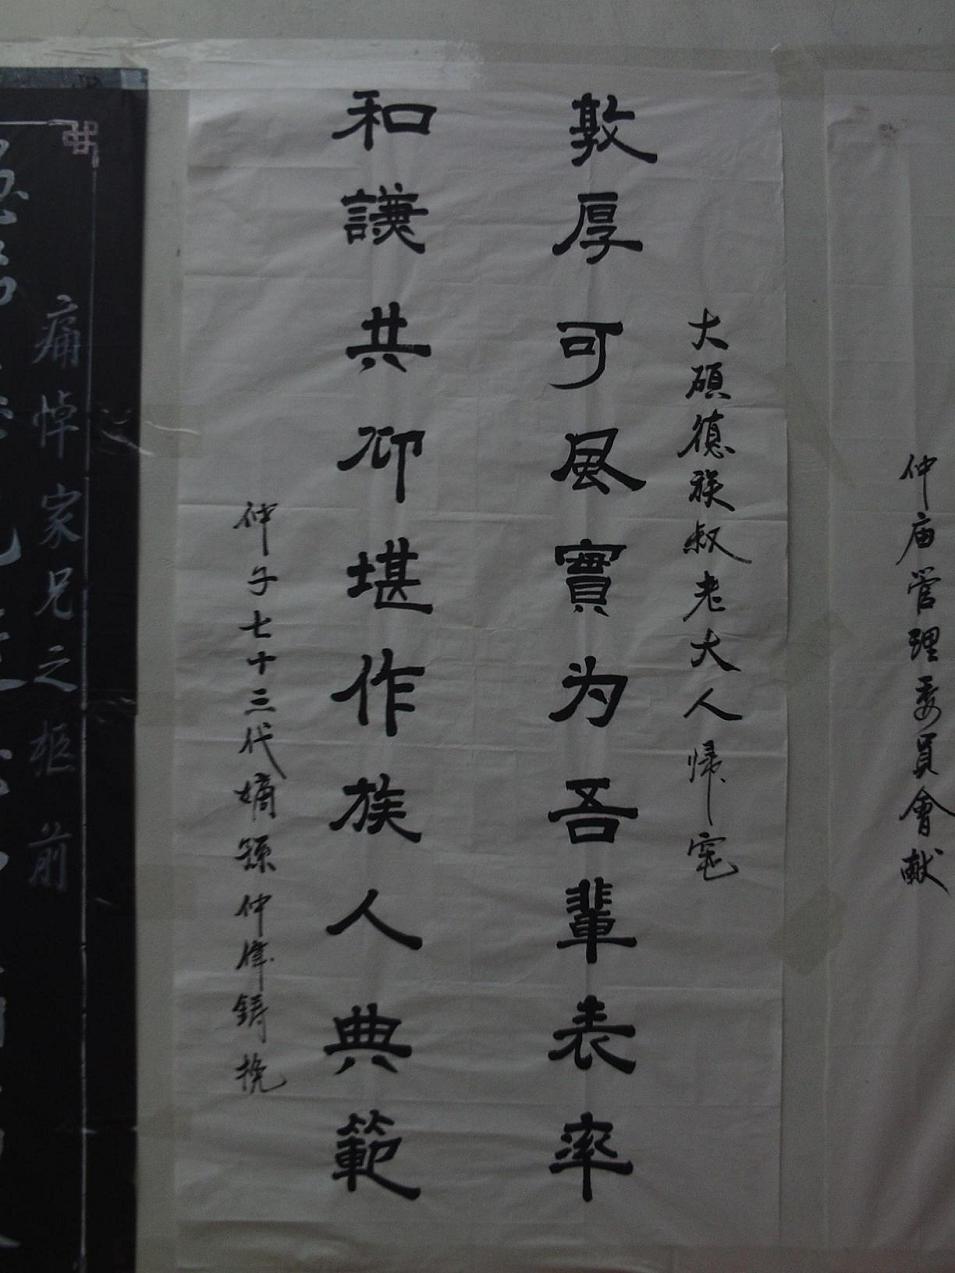 仲庙管理委員會献
大碩德族叔老大人帰窀
敦厚可風實为吾輩表率
和謙共仰堪作族人典範
仲子七十三代嫡孫仲偉鑄挽
痛悼家兄之柩前